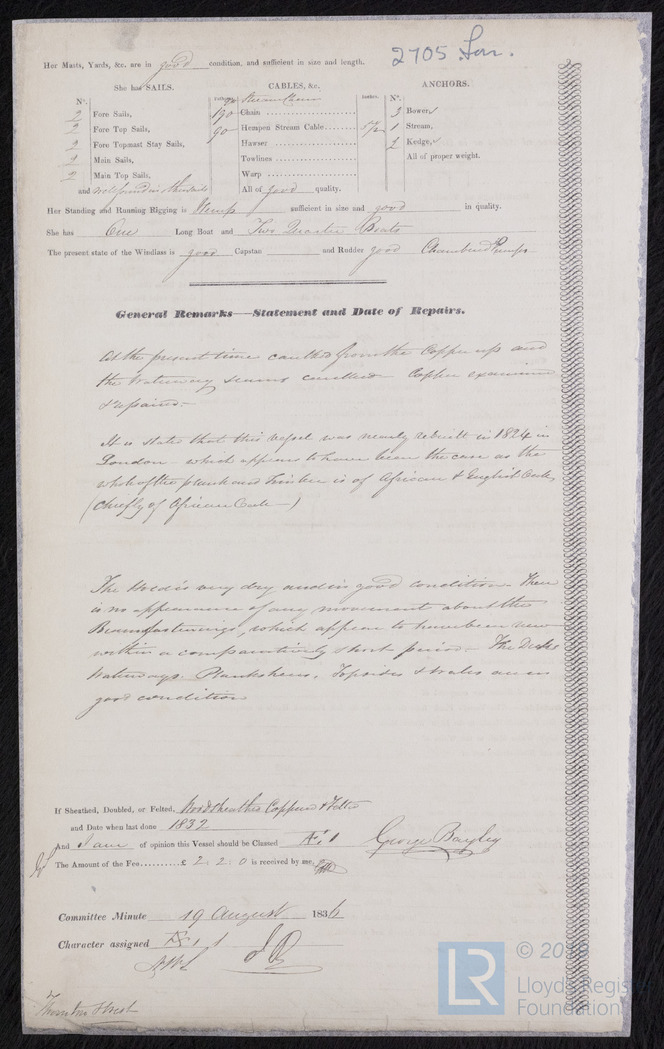 2705 Lon.
Her Masts, Yards, &c. are in good condition, and sufficient in size and length.
She has SAILS. CABLES, &c. ANCHORS.
N°. Fathoms. Inches. N°.
90 Stream Chain
2 Fore Sails, 190 Chain 3 Bower,
2 Fore Top Sails, 90 Hempen Stream Cable 1 Stream,
2 Fore Topmast Stay Sails, Hawser 2 Kedge,
2 Main Sails, Towlines All of proper weight.
2 Main Top Sails, Warp
and well found in other sails All of good quality.
Her Standing and Running Rigging is Hemp sufficient in size and good in quality.
She has One Long Boat and Two Quarter Boats
The present state of the Windlass is good Capstan and Rudder good Chambered Pumps
General Remarks—Statement and Date of Repairs.
At the present time caulked from the Copper up and
the Waterway seams caulked – Copper examined
& repaired –
It is stated that this vessel was nearly rebuilt in 1824 in
London – which appears to have been the case as the
whole of the plank and Timber is of African & English Oak,
(chiefly of African Oak –)
The Hold is very dry and in good condition – There
is no appearance of any movement about the
Beam fastenings, which appear to have been new
within a comparatively short period – The Decks
Waterways. Planksheers, Topsides & Wales are in
good condition
If Sheathed, Doubled, or Felted, Wood Sheathed Coppered & Felted
and Date when last done 1832
And I am of opinion this Vessel should be Classed Æ 1 George Bayley
The Amount of the Fee £ 2: 2: 0 is received by me,
Committee Minute 19 August 1836
Character assigned Æ 1
Thornton & West
LR
© 20
Lloyd's Regis
Foundation